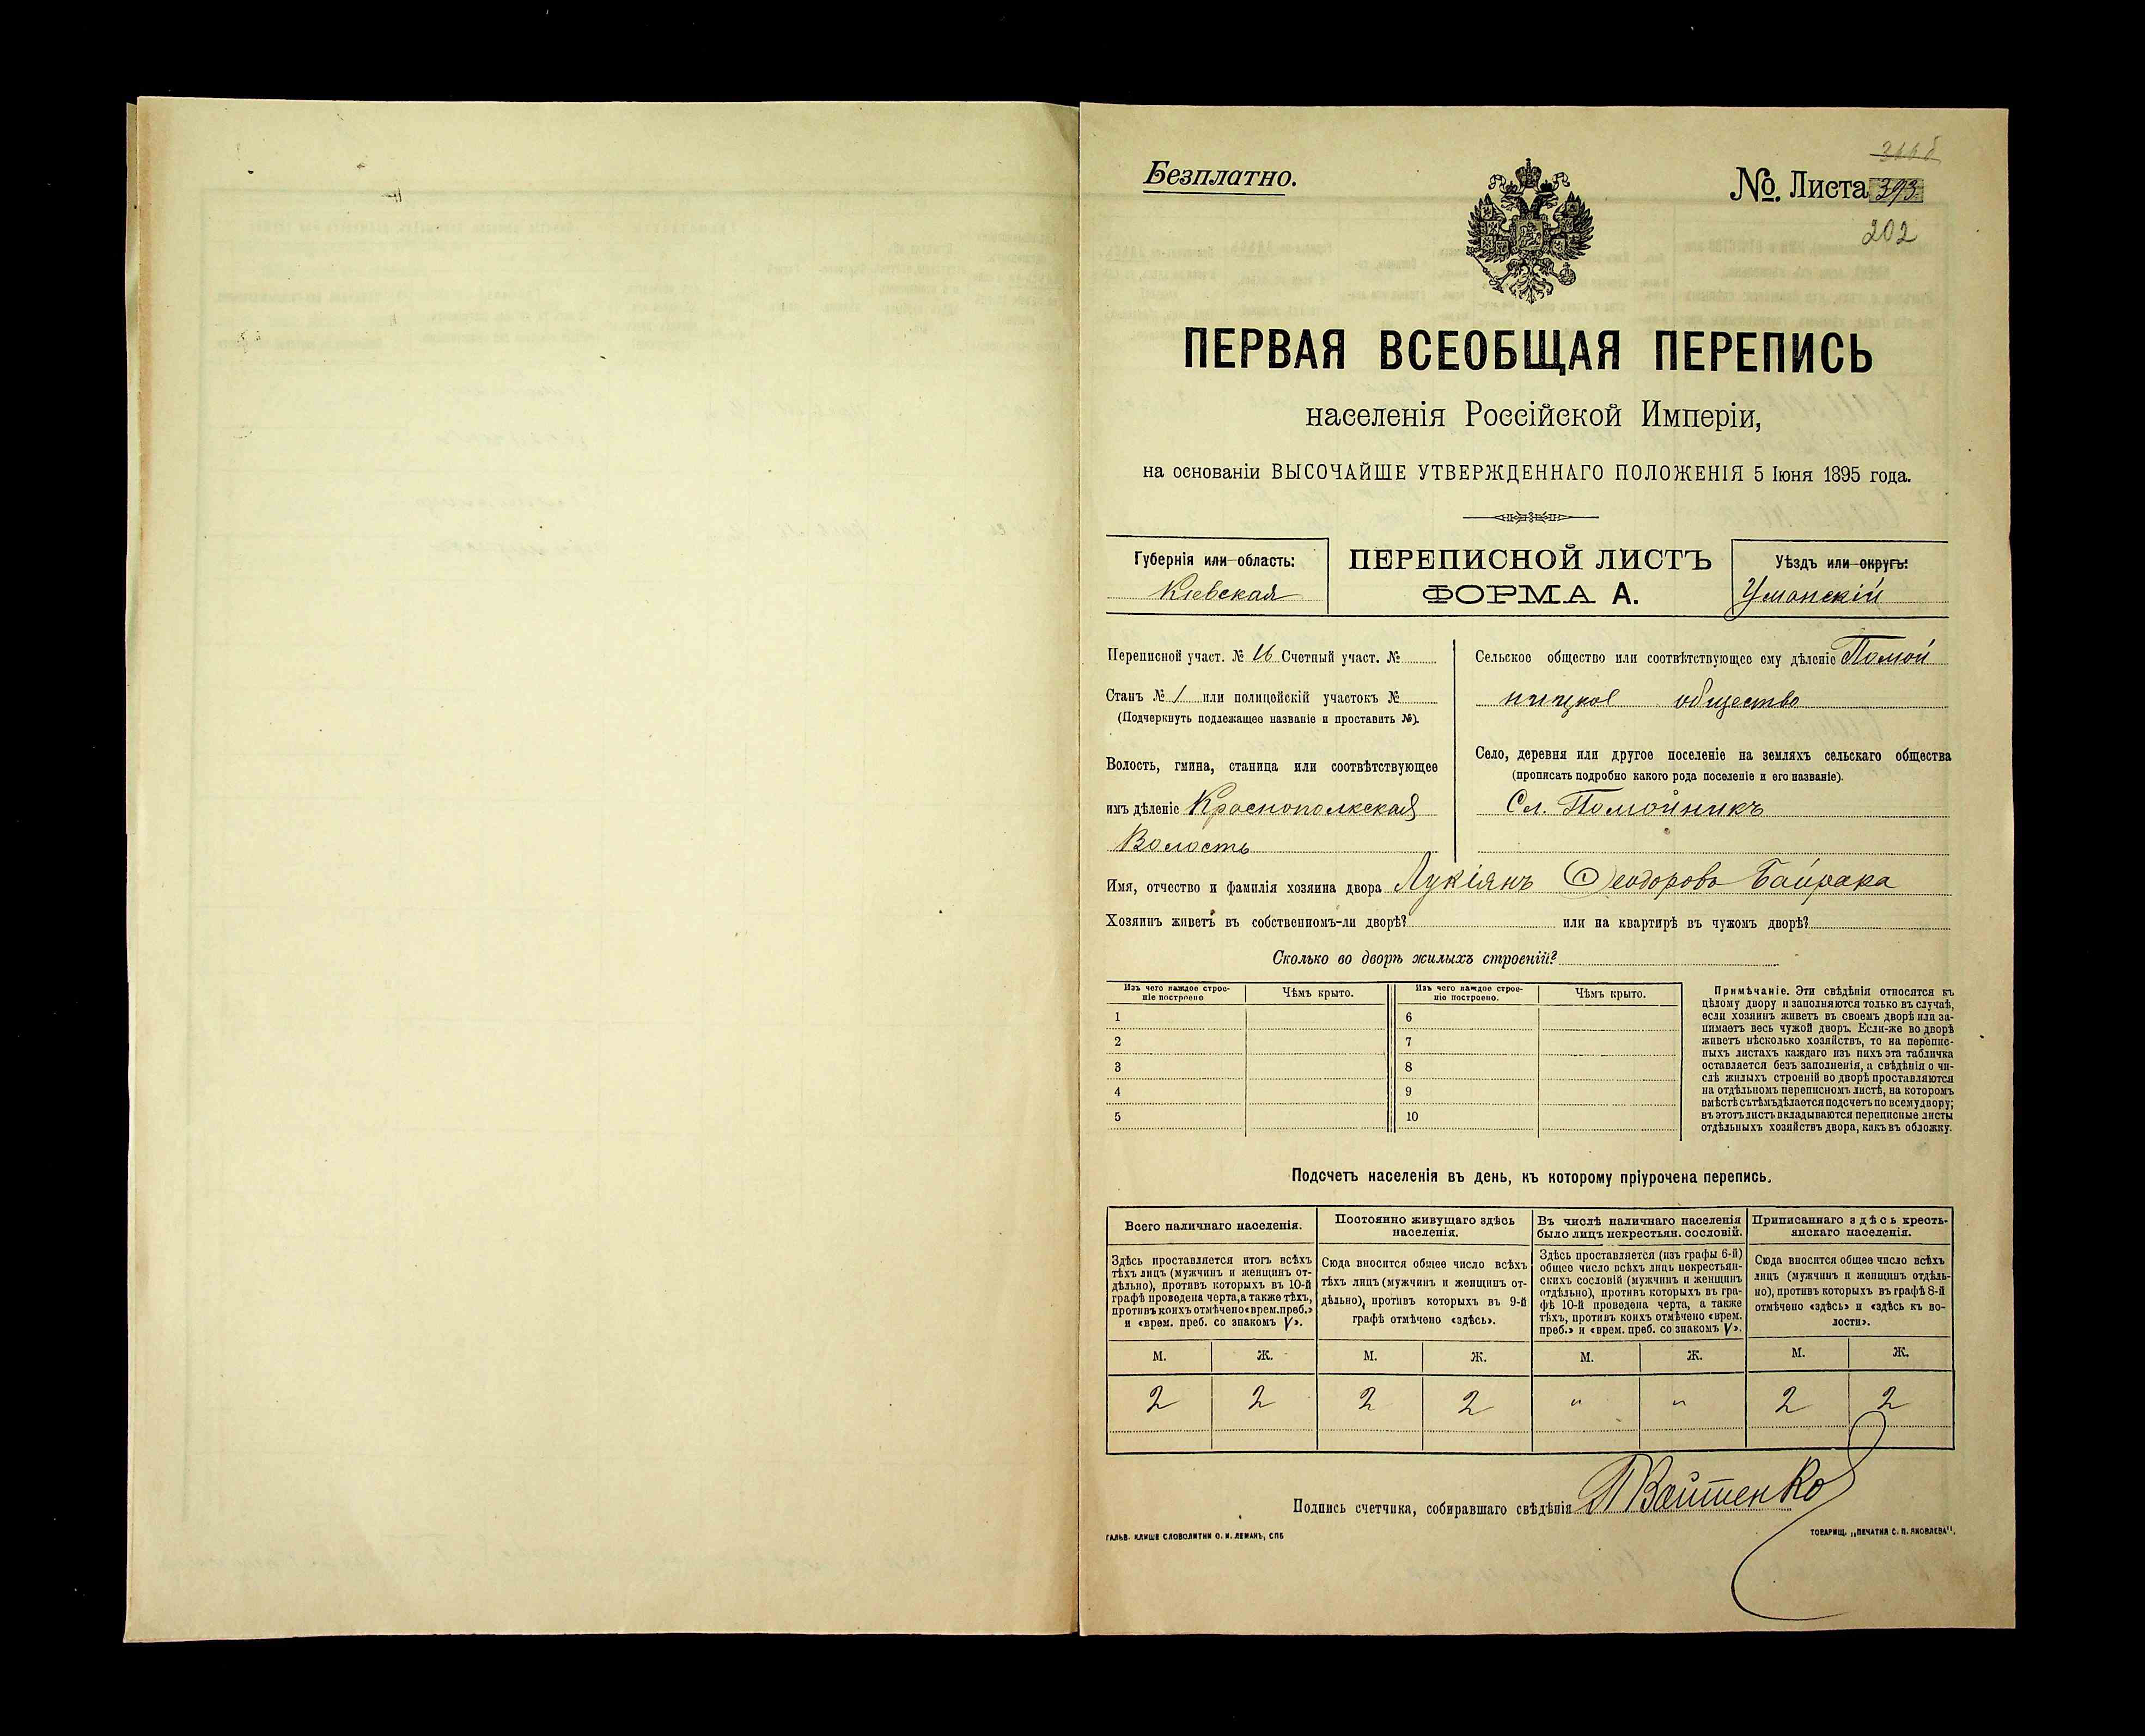 Безплатно.
№. Листа 393
202
ПЕРВАЯ ВСЕОБЩАЯ ПЕРЕПИСЬ
населенія Россійской Имперіи,
на основаніи ВЫСОЧАЙШЕ УТВЕРЖДЕННАГО ПОЛОЖЕНІЯ 5 Іюня 1895 года.
Губернія или область:
Кіевская
ПЕРЕПИСНОЙ ЛИСТЪ
ФОРМА А.
Уѣздъ или округъ:
Уманскій
Переписной участ. № 16 Счетный участ. №
Станъ № 1 или полицейскій участокъ №
(Подчеркнуть подлежащее названіе и проставить №).
Волость, гмина, станица или соотвѣтствующее
имъ дѣленіе Краснополкская
Волость
Сельское общество или соотвѣтствующее ему дѣленіе Помой
ницкое общество
Село, деревня или другое поселеніе на земляхъ сельскаго общества
(прописать подробно какого рода поселеніе и его названіе).
Сл. Помойникъ
Имя, отчество и фамилія хозяина двора Лукіянъ Ѳеодоровъ Байрака
Хозяинъ живетъ въ собственномъ-ли дворѣ? или на квартирѣ въ чужомъ дворѣ?
Сколько во дворѣ жилыхъ строеній?
Изъ чего каждое строе-
ніе построено
Чѣмъ крыто.
Изъ чего каждое строе-
ніе построено.
Чѣмъ крыто.
1 6
2 7
3 8
4 9
5 10
Примѣчаніе. Эти свѣдѣнія относятся къ
цѣлому двору и заполняются только въ случаѣ,
если хозяинъ живетъ въ своемъ дворѣ или за-
нимаетъ весь чужой дворъ. Если-же во дворѣ
живетъ нѣсколько хозяйствъ, то на перепис-
ныхъ листахъ каждаго изъ нихъ эта табличка
оставляется безъ заполненія, а свѣдѣнія о чи-
слѣ жилыхъ строеній во дворѣ проставляются
на отдѣльномъ переписномъ листѣ, на которомъ
вмѣстѣ съ тѣмъ дѣлается подсчетъ по всему двору;
въ этотъ листъ вкладываются переписные листы
отдѣльныхъ хозяйствъ двора, какъ въ обложку.
Подсчетъ населенія въ день, къ которому пріурочена перепись.
Всего наличнаго населенія.
Здѣсь проставляется итогъ всѣхъ
тѣхъ лицъ (мужчинъ и женщинъ от-
дѣльно), противъ которыхъ въ 10-й
графѣ проведена черта, а также тѣхъ,
противъ коихъ отмѣчено «врем. преб.»
и «врем. преб. со знакомъ V».
Постоянно живущаго здѣсь
населенія.
Сюда вносится общее число всѣхъ
тѣхъ лицъ (мужчинъ и женщинъ от-
дѣльно), противъ которыхъ въ 9-й
графѣ отмѣчено «здѣсь».
Въ числѣ наличнаго населенія
было лицъ некрестьян. сословій.
Здѣсь проставляется (изъ графы 6-й)
общее число всѣхъ лицъ некрестьян-
скихъ сословій (мужчинъ и женщинъ
отдѣльно), противъ которыхъ въ гра-
фѣ 10-й проведена черта, а также
тѣхъ, противъ коихъ отмѣчено «врем.
преб.» и «врем. преб. со знакомъ V».
Приписаннаго здѣсь кресть-
янскаго населенія.
Сюда вносится общее число всѣхъ
лицъ (мужчинъ и женщинъ отдѣль-
но), противъ которыхъ въ графѣ 8-й
отмѣчено «здѣсь» и «здѣсь къ во-
лости».
М. Ж. М. Ж. М. Ж. М. Ж.
2 2 2 2 " " 2 2
Подпись счетчика, собиравшаго свѣдѣнія П Войтенко
ГАЛЬВ. КЛИШЕ СЛОВОЛИТНИ О. И. ЛЕМАНЪ, СПБ
ТОВАРИЩ. „ПЕЧАТНЯ С. П. ЯКОВЛЕВА".